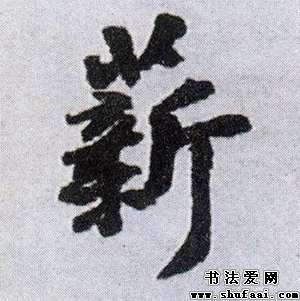 薪
书法爱网
www.shufaai.com